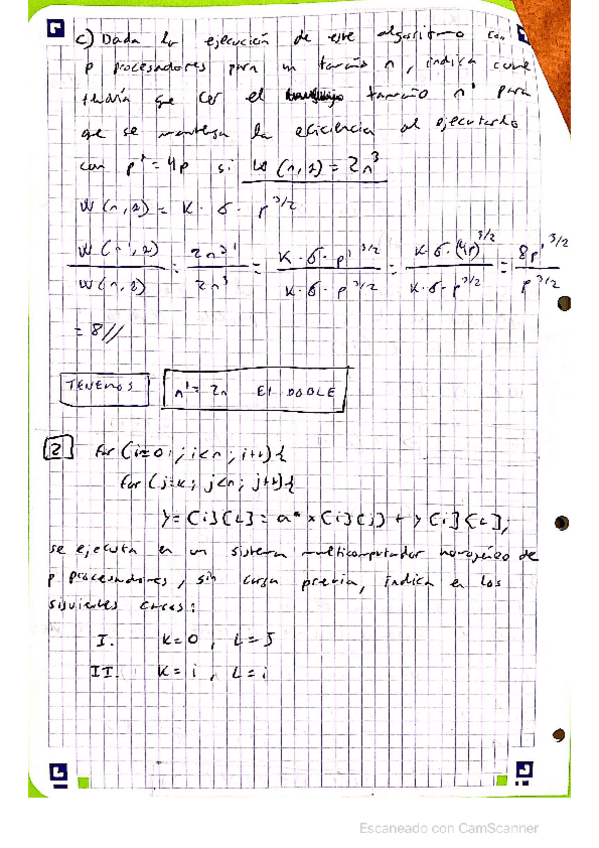 c) Dada la ejecución de este algoritmo con
p procesadores para un tamaño n, indica como
tendría que ser el tamaño n' para
que se mantenga la eficiencia al ejecutarlo
con p' = 4p si W(n,1) = 2n³
W(n,1) = K · σ · p^3/2
W(n',1) / W(n,1) = 2n³' / 2n³ = K·σ·p'^3/2 / K·σ·p^3/2 = K·σ·(4p)^3/2 / K·σ·p^3/2 = 8p'^3/2 / p^3/2
= 8//
TENEMOS n' = 2n El DOBLE
2 for (i=0; i<n; i++){
for (j=k; j<n; j++){
y=[i][L] = a* x[i][j] + y[i][L];
se ejecuta en un sistema multicomputador homogéneo de
p procesadores, sin carga previa, indica en los
siguientes casos:
I. K=0, L=J
II. K=i, L=i
Escaneado con CamScanner